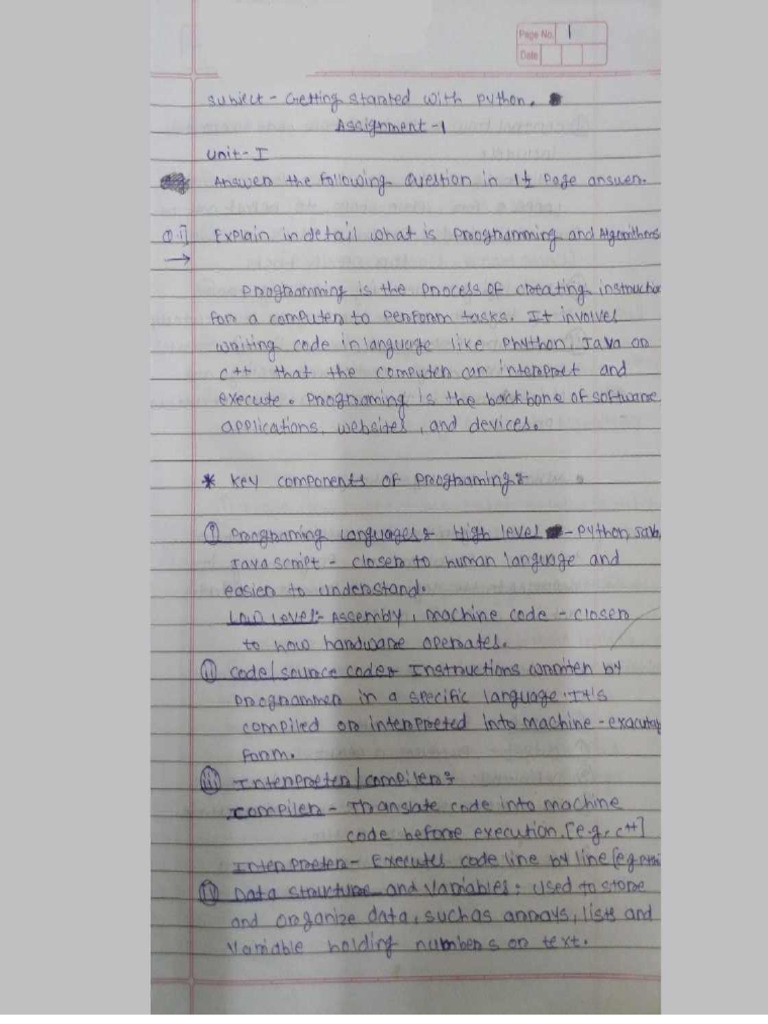 Page No. 1
Date
Subject - Getting Started with Python.
Assignment -1
Unit - I
Answer the following Question in 1½ Page answer.
Q.1] Explain in detail what is Proogramming and Algorithms
→
Programming is the process of creating instructio
for a computer to perform tasks. It involves
writing code in language like Phython, Java or
C++ that the computer can interpret and
execute. Programing is the backbone of software
applications, websites, and devices.
* Key components of Programing:-
(i) Programing Languages:- High level - Python, Java,
Java Script - closer to human language and
easier to understand.
Low Level:- Assembly, machine code - closer
to how hardware operates.
(ii) Code/Source code:- Instructions wrriten by
programmer in a specific language. It's
compiled or interpreted into machine - exacutab
form.
(iii) Interpreter/compiler:-
Compiler - Translate code into machine
code before execution. [e.g., C++]
Interpreter - Executes code line by line [e.g
(iv) Data Structure and Variables: Used to store
and organize data, such as arrays, lists and
Variable holding numbers or text.